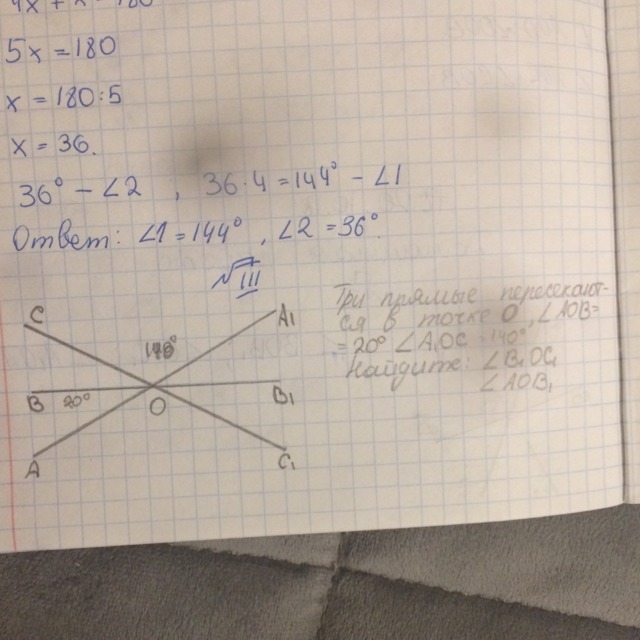 4x + x = 180
5x = 180
x = 180:5
x = 36.
36° – ∠2 , 36·4 = 144° – ∠1
Ответ: ∠1 = 144°, ∠2 = 36°.
√III
C
A₁
140°
B
20°
O
B₁
A
C₁
Три прямые пересекают-
ся в точке O ∠AOB=
=20° ∠A₁OC 140°
Найдите: ∠B₁OC₁
∠AOB₁